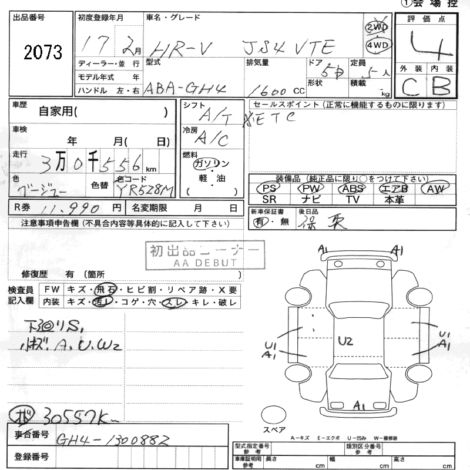 ①会場控
出品番号
2073
初度登録年月
17年2月
車名・グレード
HR-V JS4 VTE
2WD
4WD
評価点
4
ディーラー・並行
モデル年式 年
ハンドル 左・右
型式
ABA-GH4
排気量
1600 CC
ドア 形状
5D
定員
5人
積載
kg
外装 内装
C B
車歴
自家用( )
シフト
A/T
冷房
A/C
燃料
ガソリン
軽・油
セールスポイント(正常に機能するものに限ります)
ETC
車検
年 月( )
走行
3万0千556km
色
ベージュー
色替
色コード
YR528M
装備品(純正品に限り○をつけて下さい)
PS PW ABS エアB AW
SR ナビ TV 本革
R券
11,990円
名変期限 月 日
新車保証書
有・無
後日品
保 取
注意事項申告欄(不具合内容等具体的に記入して下さい)
初出品コーナー
AA DEBUT
修復歴 有(箇所 )
検査員記入欄
FW キズ・飛石・ヒビ割・リペア跡・X要
内装 キズ・汚レ・コゲ・穴・スレ・キレ・破レ
下廻リS,
小キズ.A.U.W2
30557K
車台番号
GH4-1300882
登録番号
A1
A1
U1
U2
U1
A1
A1
スペア
A-キズ E-エクボ U-凹み W-補修跡
型式指定番号
類別区分番号
車庫証明用
長さ cm
幅 cm
高さ cm